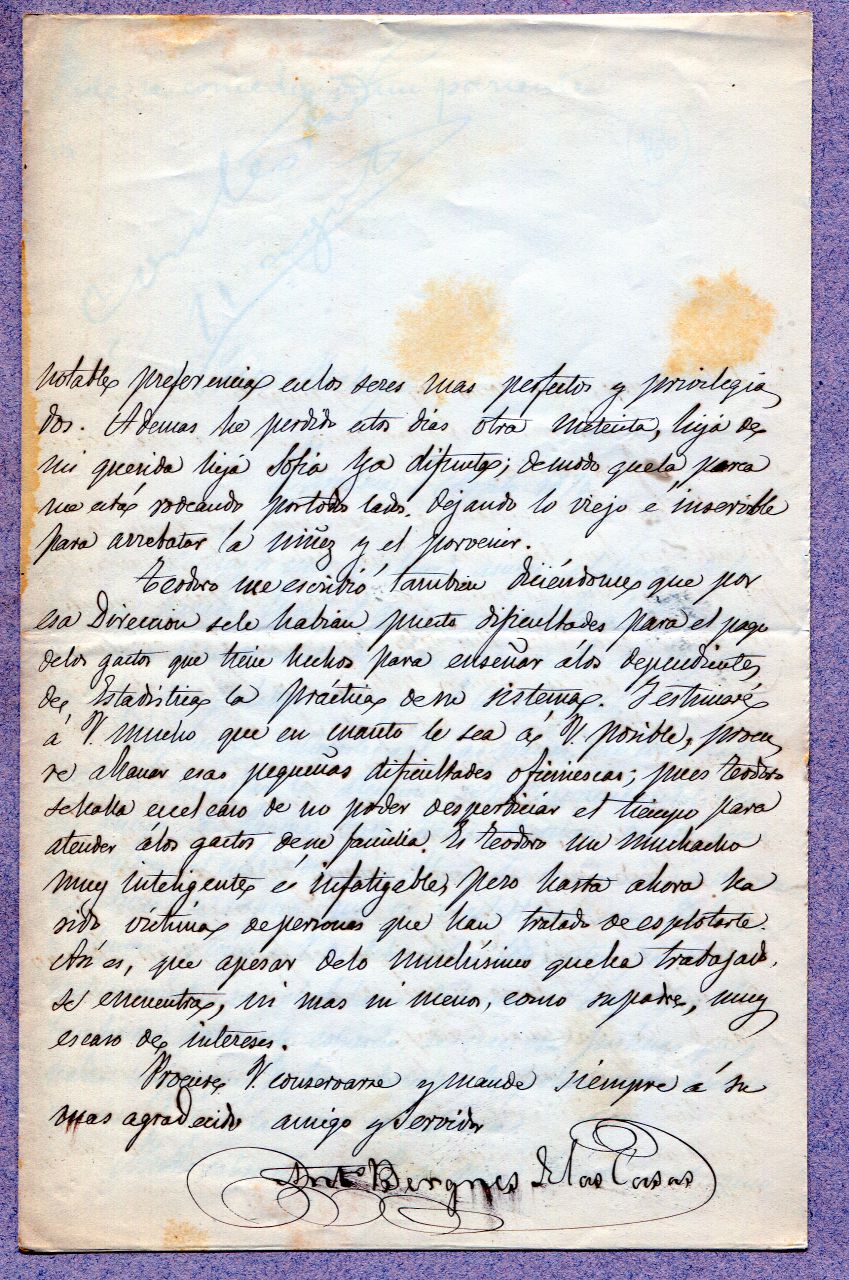 notable preferencia en los seres mas perfectos y privilegia
dos. Ademas he perdido estos días otra nietecita, hija de
mi querida hija Sofia ya difunta; de modo que la parca
me está rodeando por todos lados, dejando lo viejo e inservible
para arrebatar la niñez y el porvenir.
Teodoro me escribió tambien diciéndome que por
esa Direccion se le habian puesto dificultades para el pago
de los gastos que tiene hechos para enseñar á los dependientes
de Estadística la práctica de su sistema. Estimaré
á V. mucho que en cuanto le sea á V. posible, procu
re allanar esas pequeñas dificultades oficinescas; pues Teodoro
se halla en el caso de no poder desperdiciar el tiempo para
atender á los gastos de su familia. Es Teodoro un muchacho
muy inteligente é infatigable, pero hasta ahora ha
sido víctima de personas que han tratado de esplotarle.
Asi es, que apesar de lo muchísimo que ha trabajado,
se encuentra, ni mas ni menos, como su padre, muy
escaso de intereses.
Procure V. conservarse y mande siempre á su
mas agradecido amigo y servidor
Ant.o Bergnes de las Casas